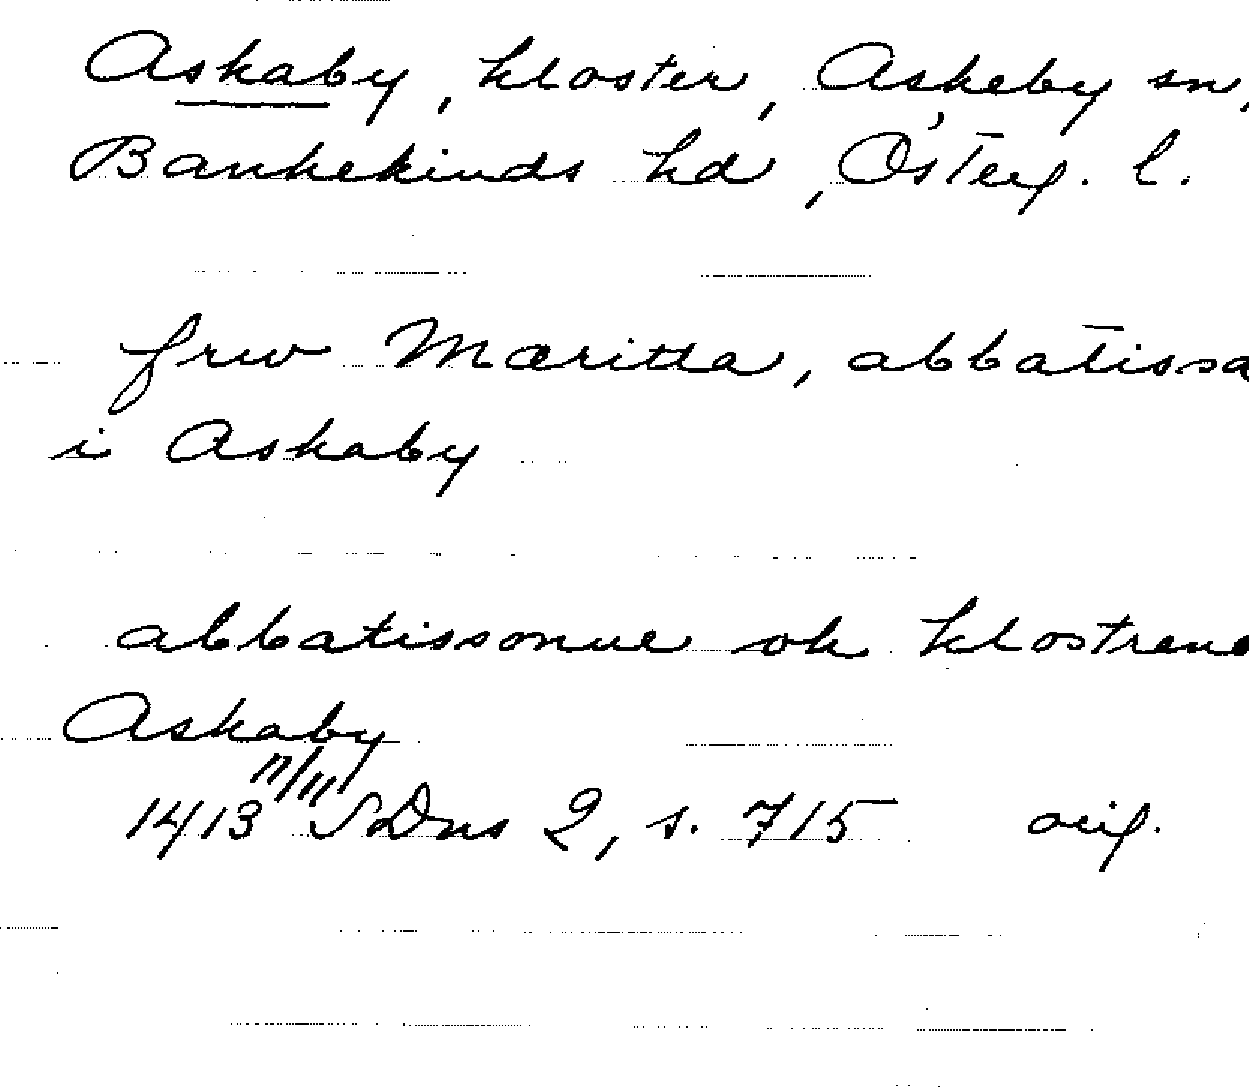 Askaby, kloster, Askeby sn,
Bankekinds hd, Österg. l.
frw Mæritta, abbatissa
i Askaby
abbatissonne ok klostreno
Askaby
1413 11/11 SDns 2, s. 715 orig.